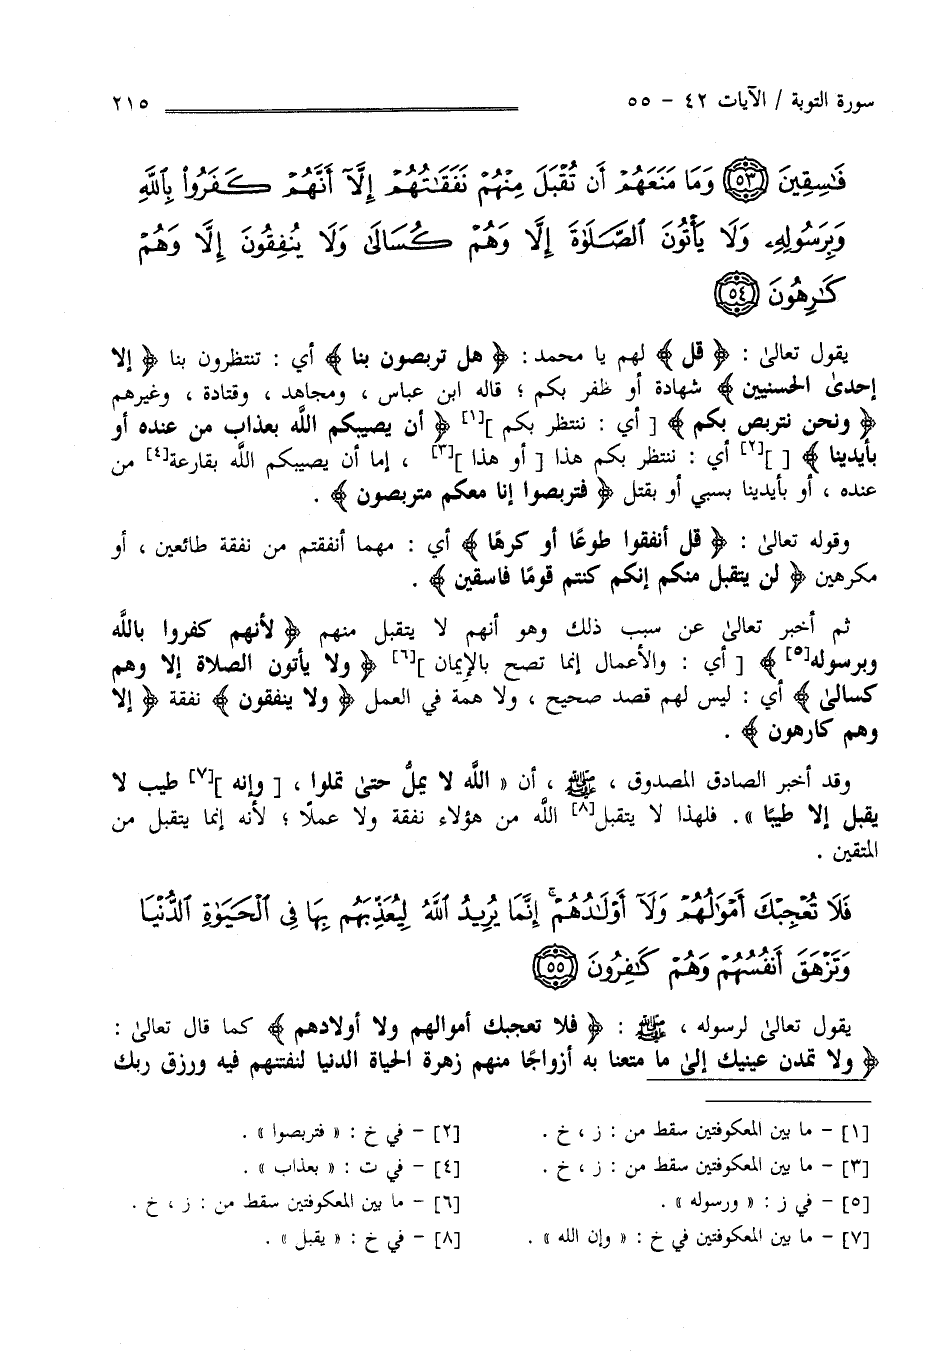 سورة التوبة / الآيات ٤٢ - ٥٥ ٢١٥
فَـٰسِقِينَ ﴿٥٣﴾ وَمَا مَنَعَهُمْ أَن تُقْبَلَ مِنْهُمْ نَفَقَـٰتُهُمْ إِلَّآ أَنَّهُمْ كَفَرُوا۟ بِٱللَّهِ
وَبِرَسُولِهِۦ وَلَا يَأْتُونَ ٱلصَّلَوٰةَ إِلَّا وَهُمْ كُسَالَىٰ وَلَا يُنفِقُونَ إِلَّا وَهُمْ
كَـٰرِهُونَ ﴿٥٤﴾
يقول تعالىٰ : ﴿ قل ﴾ لهم يا محمد : ﴿ هل تربصون بنا ﴾ أي : تنتظرون بنا ﴿ إلا
إحدىٰ الحسنيين ﴾ شهادة أو ظفر بكم ؛ قاله ابن عباس ، ومجاهد ، وقتادة ، وغيرهم
﴿ ونحن نتربص بكم ﴾ [ أي : ننتظر بكم ][١] ﴿ أن يصيبكم اللَّه بعذاب من عنده أو
بأيدينا ﴾ [ ][٢] أي : ننتظر بكم هذا [ أو هذا ][٣] ، إما أن يصيبكم اللَّه بقارعة[٤] من
عنده ، أو بأيدينا بسبي أو بقتل ﴿ فتربصوا إنا معكم متربصون ﴾ .
وقوله تعالىٰ : ﴿ قل أنفقوا طوعًا أو كرهًا ﴾ أي : مهما أنفقتم من نفقة طائعين ، أو
مكرهين ﴿ لن يتقبل منكم إنكم كنتم قومًا فاسقين ﴾ .
ثم أخبر تعالىٰ عن سبب ذلك وهو أنهم لا يتقبل منهم ﴿ لأنهم كفروا باللَّه
وبرسوله[٥] ﴾ [ أي : والأعمال إنما تصح بالإيمان ][٦] ﴿ ولا يأتون الصلاة إلا وهم
كسالىٰ ﴾ أي : ليس لهم قصد صحيح ، ولا همة في العمل ﴿ ولا ينفقون ﴾ نفقة ﴿ إلا
وهم كارهون ﴾ .
وقد أخبر الصادق المصدوق ، ﷺ ، أن « اللَّه لا يملُّ حتىٰ تملوا ، [ وإنه ][٧] طيب لا
يقبل إلا طيبًا » . فلهذا لا يتقبل[٨] اللَّه من هؤلاء نفقة ولا عملًا ؛ لأنه إنما يتقبل من
المتقين .
فَلَا تُعْجِبْكَ أَمْوَٰلُهُمْ وَلَآ أَوْلَـٰدُهُمْ ۚ إِنَّمَا يُرِيدُ ٱللَّهُ لِيُعَذِّبَهُم بِهَا فِى ٱلْحَيَوٰةِ ٱلدُّنْيَا
وَتَزْهَقَ أَنفُسُهُمْ وَهُمْ كَـٰفِرُونَ ﴿٥٥﴾
يقول تعالىٰ لرسوله ، ﷺ : ﴿ فلا تعجبك أموالهم ولا أولادهم ﴾ كما قال تعالىٰ :
﴿ ولا تمدن عينيك إلىٰ ما متعنا به أزواجًا منهم زهرة الحياة الدنيا لنفتنهم فيه ورزق ربك
[١] - ما بين المعكوفتين سقط من : ز ، خ . [٢] - في خ : « فتربصوا » .
[٣] - ما بين المعكوفتين سقط من : ز ، خ . [٤] - في ت : « بعذاب » .
[٥] - في ز : « ورسوله » . [٦] - ما بين المعكوفتين سقط من : ز ، خ .
[٧] - ما بين المعكوفتين في خ : « وإن الله » . [٨] - في خ : « يقبل » .